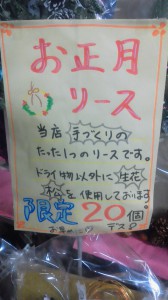 お正月
リース
当店 手づくりの
たった1つのリースです。
ドライ物以外に生花
松を使用しております。
限定20個